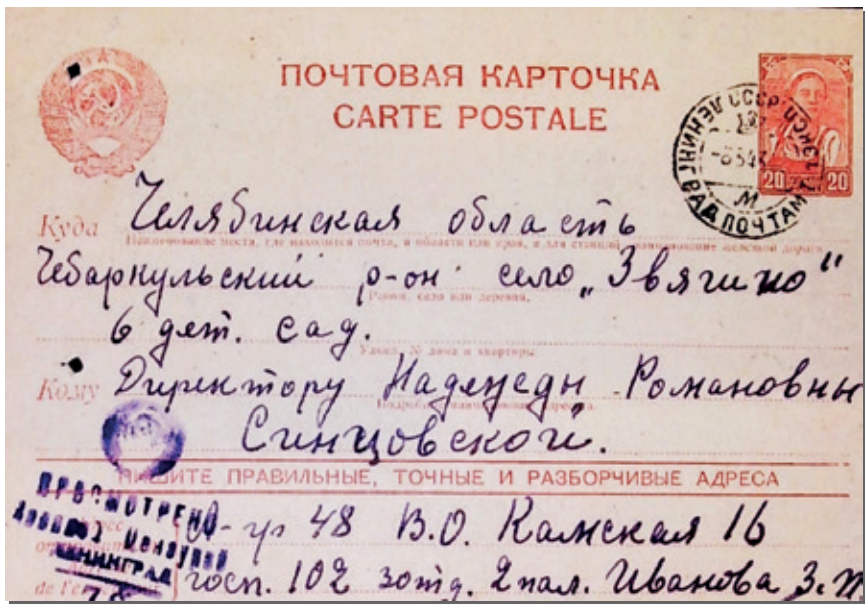 ПОЧТОВАЯ КАРТОЧКА
CARTE POSTALE
СССР ЛЕНИНГРАД ПОЧТАМТ
М
20 20
Куда Челябинская область
Наименование места, где находится почта, и области или края, а для станций наименование железной дороги
Чебаркульский р-он село „Звягино“
Район, село или деревня.
6 дет. сад.
Улица, № дома и квартиры
Кому Директору Надежды Романовны
Синцовской.
ПИШИТЕ ПРАВИЛЬНЫЕ, ТОЧНЫЕ И РАЗБОРЧИВЫЕ АДРЕСА
ПРОСМОТРЕНО
Военной Цензурой
ЛЕНИНГРАД
Л-гр 48 В.О. Камская 16
госп. 102 3отд. 2пал. Иванова З.И.